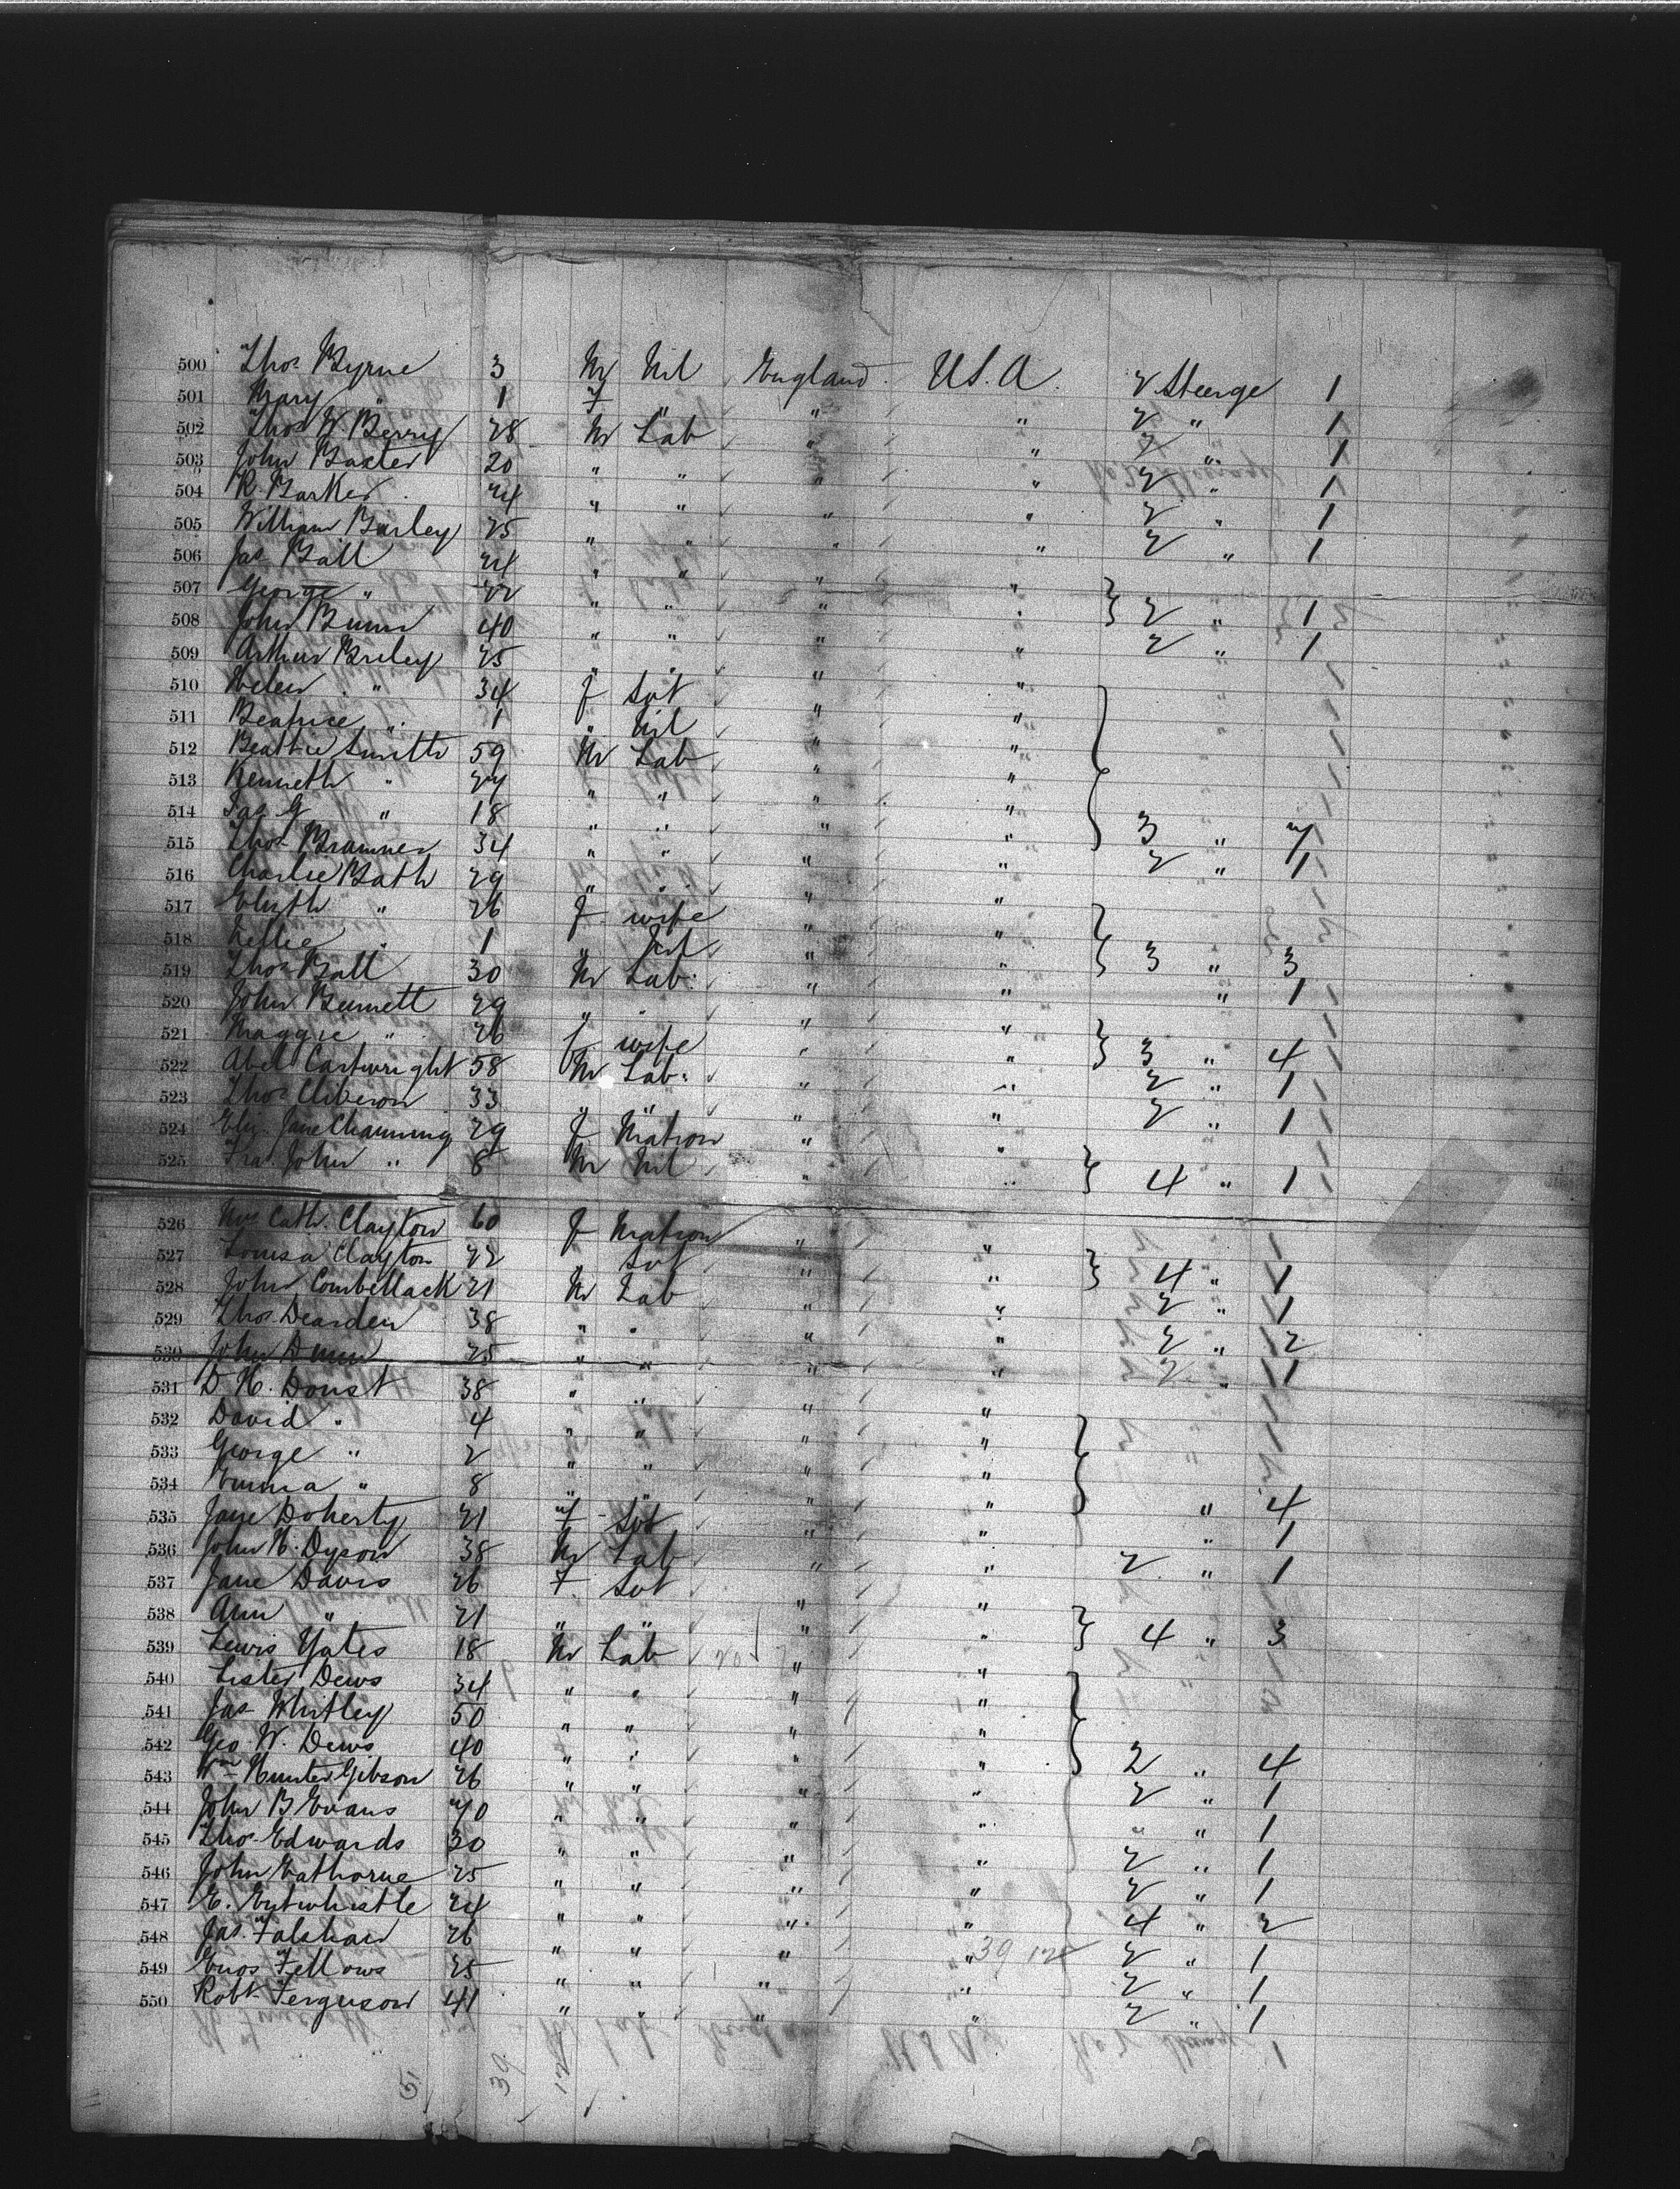 500 Thos Byrne 3 M Nil England U.S.A. 2 Steerge 1
501 Mary " 1 F " " " 2 " 1
502 Thos W. Berry 28 M Lab " " 2 " 1
503 John Baxter 20 " " " " 2 " 1
504 R. Barker 24 " " " " 2 " 1
505 William Barley 25 " " " " 2 " 1
506 Jas Ball 24 " " " "
507 George " 22 " " " " } 2 " 1
508 John Bunn 40 " " " " 2 " 1
509 Arthur Briley 25 " " " "
510 Helen " 34 F Svt " "
511 Beatrice " 1 " Nil " "
512 Smith 59 M Lab " "
513 Kenneth " 27 " " " "
514 Jas G " 18 " " " " } 3 " 7
515 Thos 34 " " " " 2 " 1
516 Charlie Bath 29 " " " "
517 Elizth " 26 F wife " "
518 Nellie " 1 " Nil " " } 3 " 3
519 Thos Ball 30 M Lab: " " " 1
520 John Burnett 29 " " " "
521 Maggie " 26 f wife " " } 3 " 4
522 Abel Cartwright 58 M Lab: " " 2 " 1
523 Thos 33 " " " " 2 " 1
524 Eliz. Jane Channing 29 F Matron " "
525 Fras. John " 8 M Nil " " } 4 " 1
526 Mrs Cath. Clayton 60 F Matron " "
527 Louisa Clayton 22 " Svt " " } 4 " 1
528 John Combellack 21 M Lab " " 2 " 1
529 Thos Dearden 38 " " " " 2 " 2
530 John Dunn 25 " " " " 2 " 1
531 D. H. Doust 38 " " " "
532 David " 4 " " " "
533 George " 2 " " " "
534 Emma " 8 " " " " } " 4
535 Jane Doherty 21 F Svt " " " 1
536 John H. Dyson 38 M Lab " " 2 " 1
537 Jane Davis 26 F. Svt " "
538 Ann " 21 " " " " } 4 " 3
539 Lewis Yates 18 M Lab 20 " "
540 Lister Dews 34 " " " "
541 Jas Whitley 50 " " " "
542 Geo. W. Dews 40 " " " " } 2 " 4
543 Wm Hunter Gibson 26 " " " " 2 " 1
544 John B Evans 40 " " " " " " 1
545 Thos Edwards 30 " " " " 2 " 1
546 John Eathorne 25 " " " " 2 " 1
547 E. Entwhistle 24 " " " " 4 " 2
548 Jas. Falshaw 26 " " " " 39 12 2 " 1
549 Enos Fellows 25 " " " " 2 " 1
550 Robt Ferguson 41 " " " " 2 " 1
51 39 12